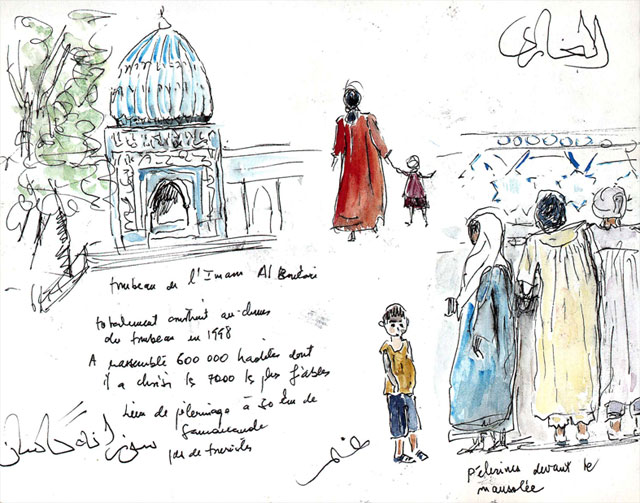 البخاري
tombeau de l'Imam Al Boukari
totalement construit au-dessus
du tombeau en 1998
A rassemblé 600 000 hadiths dont
il a choisi les 7000 les plus fiables
Lieu de pèlerinage à 30 km de
Samarcande
pas de touristes
pèlerins devant le
mausolée